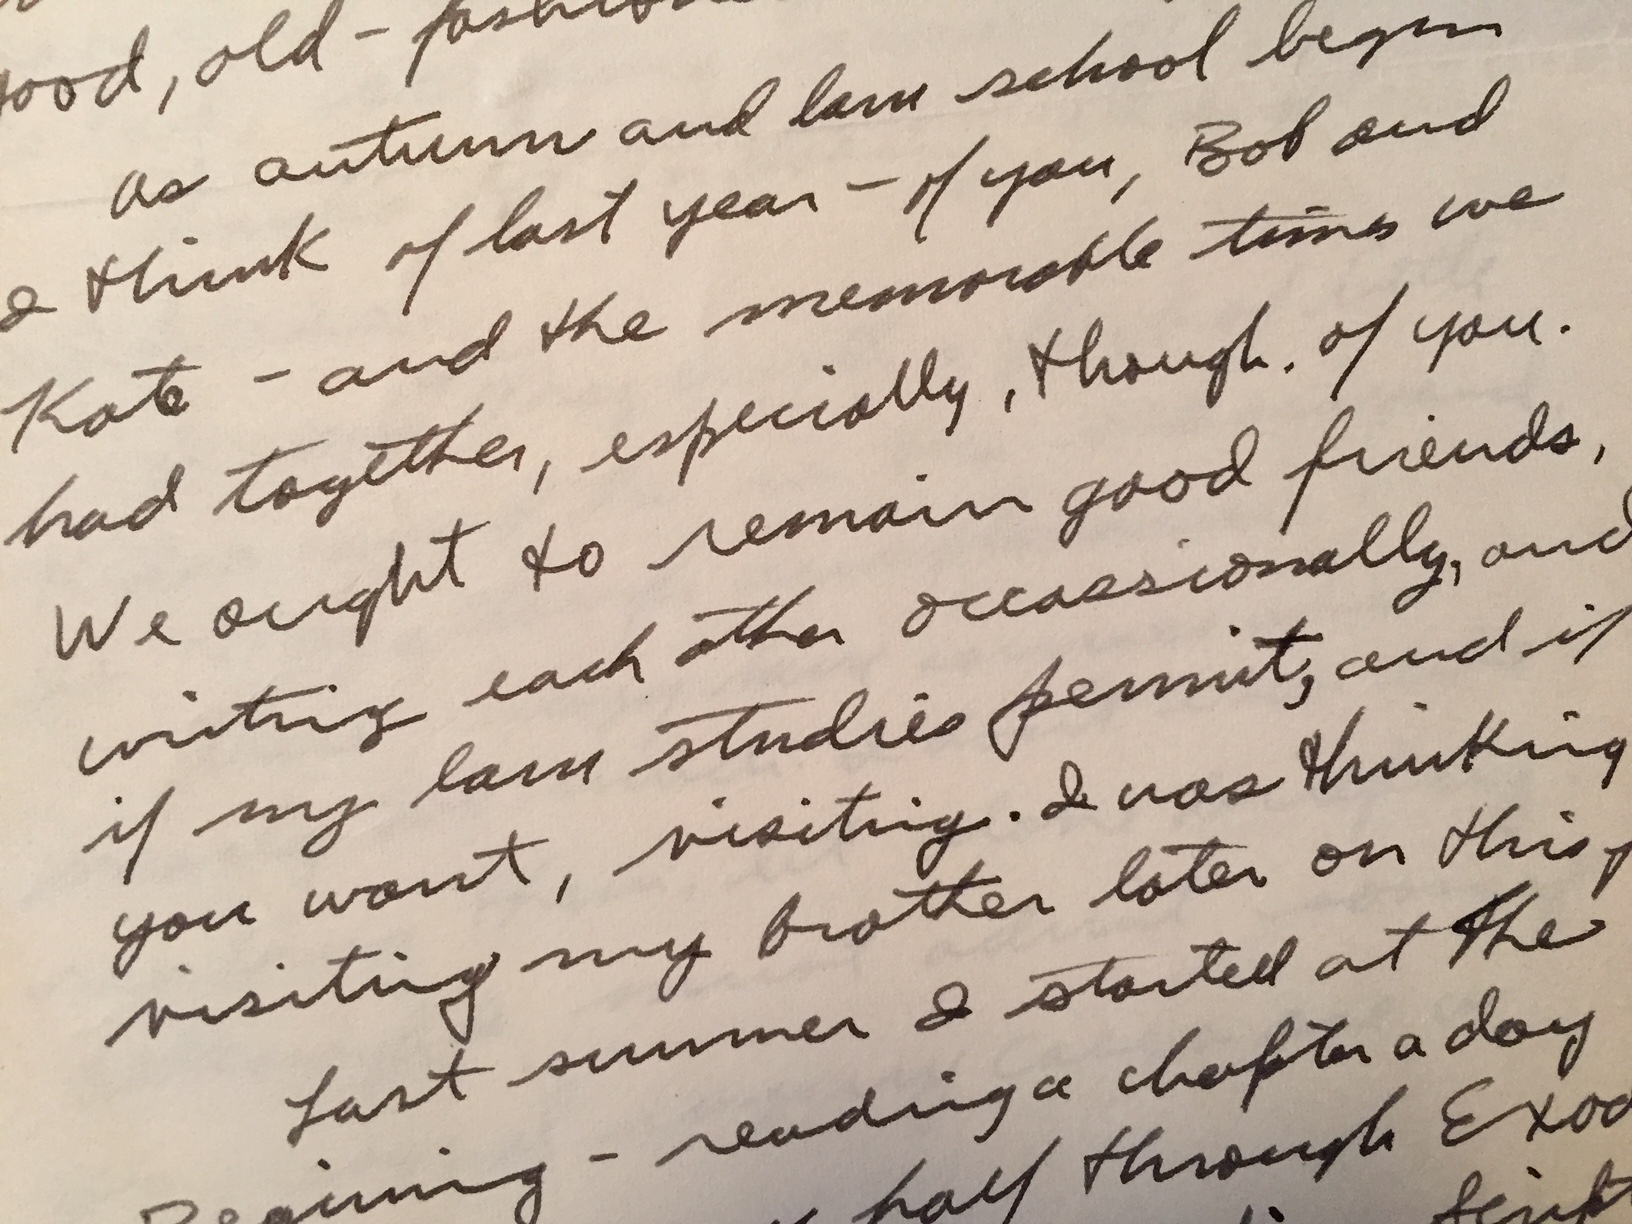 good, old-fashion
as autumn and law school begin
I think of last year - of you, Bob and
Kate - and the memorable times we
had together, especially, though, of you.
We ought to remain good friends,
writing each other occassionally, and
if my law studies permit, and if
you want, visiting. I was thinking
visiting my brother later on this
Last summer I started at the
Begining - reading a chapter a day
half through Exod